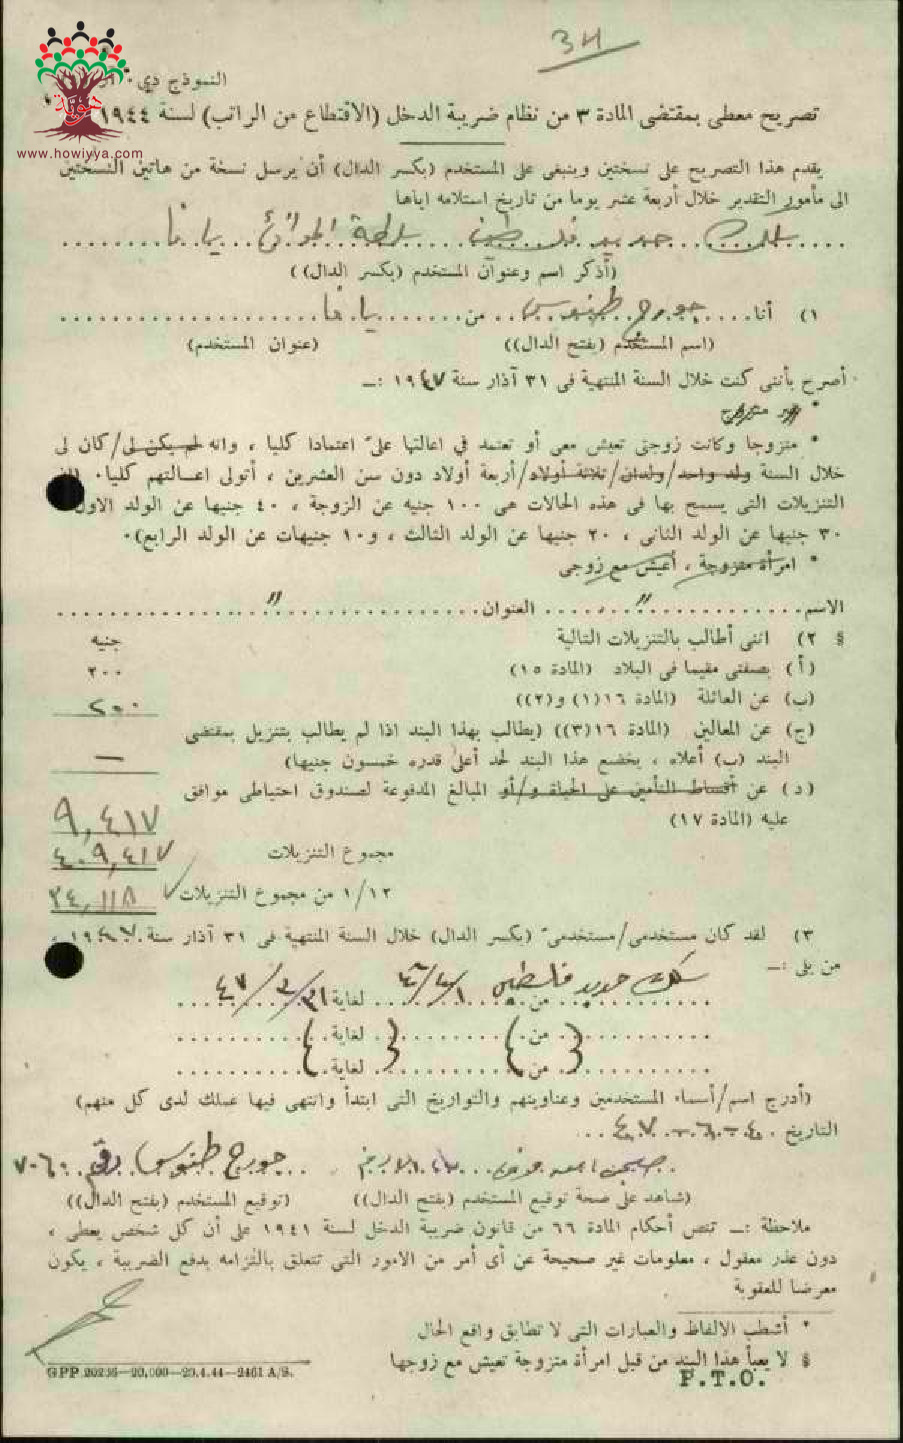 34
النموذج دي٠
هوية
www.howiyya.com
تصريح معطى بمقتضى المادة ٣ من نظام ضريبة الدخل (الاقتطاع من الراتب) لسنة ١٩٤٤
يقدم هذا التصريح على نسختين وينبغى على المستخدم (بكسر الدال) أن يرسل نسخة من هاتين النسختين
الى مأمور التقدير خلال أربعة عشر يوما من تاريخ استلامه اياها
سكة حديد فلسطين يافا
(أذكر اسم وعنوان المستخدم (بكسر الدال))
١) أنا جورج طنوس من يافا
(اسم المستخدم (بفتح الدال)) (عنوان المستخدم)
أصرح بأننى كنت خلال السنة المنتهية فى ٣١ آذار سنة ١٩٤٧ :ـ
* غير متزوج
* متزوجا وكانت زوجتى تعيش معى أو تعتمد في اعالتها علىّ اعتمادا كليا ، وانه لم يكن لى/كان لى
خلال السنة ولد واحد/ولدان/ثلاثة أولاد/أربعة أولاد دون سن العشرين ، أتولى اعالتهم كليا٠
التنزيلات التى يسمح بها فى هذه الحالات هى ١٠٠ جنيه عن الزوجة ، ٤٠ جنيها عن الولد الاول
٣٠ جنيها عن الولد الثانى ، ٢٠ جنيها عن الولد الثالث ، و١٠ جنيهات عن الولد الرابع)٠
* امرأة متزوجة ، أعيش مع زوجى
الاسم " العنوان "
§ ٢) اننى أطالب بالتنزيلات التالية جنيه
(أ) بصفتى مقيما فى البلاد (المادة ١٥) ٢٠٠
(ب) عن العائلة (المادة ١٦(١) و(٢)) ٢٠٠
(ج) عن المعالين (المادة ١٦(٣)) (يطالب بهذا البند اذا لم يطالب بتنزيل بمقتضى
البند (ب) أعلاه ، يخضع هذا البند لحد أعلى قدره خمسون جنيها) —
(د) عن أقساط التأمين على الحياة و/أو المبالغ المدفوعة لصندوق احتياطى موافق
عليه (المادة ١٧) ٩,٤١٧
مجموع التنزيلات ٤٠٩,٤١٧
١/١٢ من مجموع التنزيلات ٣٤,١١٨
٣) لقد كان مستخدمى/مستخدمىّ (بكسر الدال) خلال السنة المنتهية فى ٣١ آذار سنة ١٩٤٧ ،
من يلى :ـ
سكة حديد فلسطين من ١/٤/٤٦ لغاية ٣١/٣/٤٧
من لغاية
من لغاية
(أدرج اسم/أسماء المستخدمين وعناوينهم والتواريخ التى ابتدأ وانتهى فيها عملك لدى كل منهم)
التاريخ ٤-٦-٤٧
جورج طنوس رقم ٧٠٦٠
(شاهد على صحة توقيع المستخدم (بفتح الدال)) (توقيع المستخدم (بفتح الدال))
ملاحظة :ـ تنص أحكام المادة ٦٦ من قانون ضريبة الدخل لسنة ١٩٤١ على أن كل شخص يعطى ،
دون عذر معقول ، معلومات غير صحيحة عن أى أمر من الامور التى تتعلق بالتزامه بدفع الضريبة ، يكون
معرضا للعقوبة
* أشطب الالفاظ والعبارات التى لا تطابق واقع الحال
§ لا يعبأ هذا البند من قبل امرأة متزوجة تعيش مع زوجها
GPP 20236—20,000—29.4.44—2461 A/S.
P.T.O.